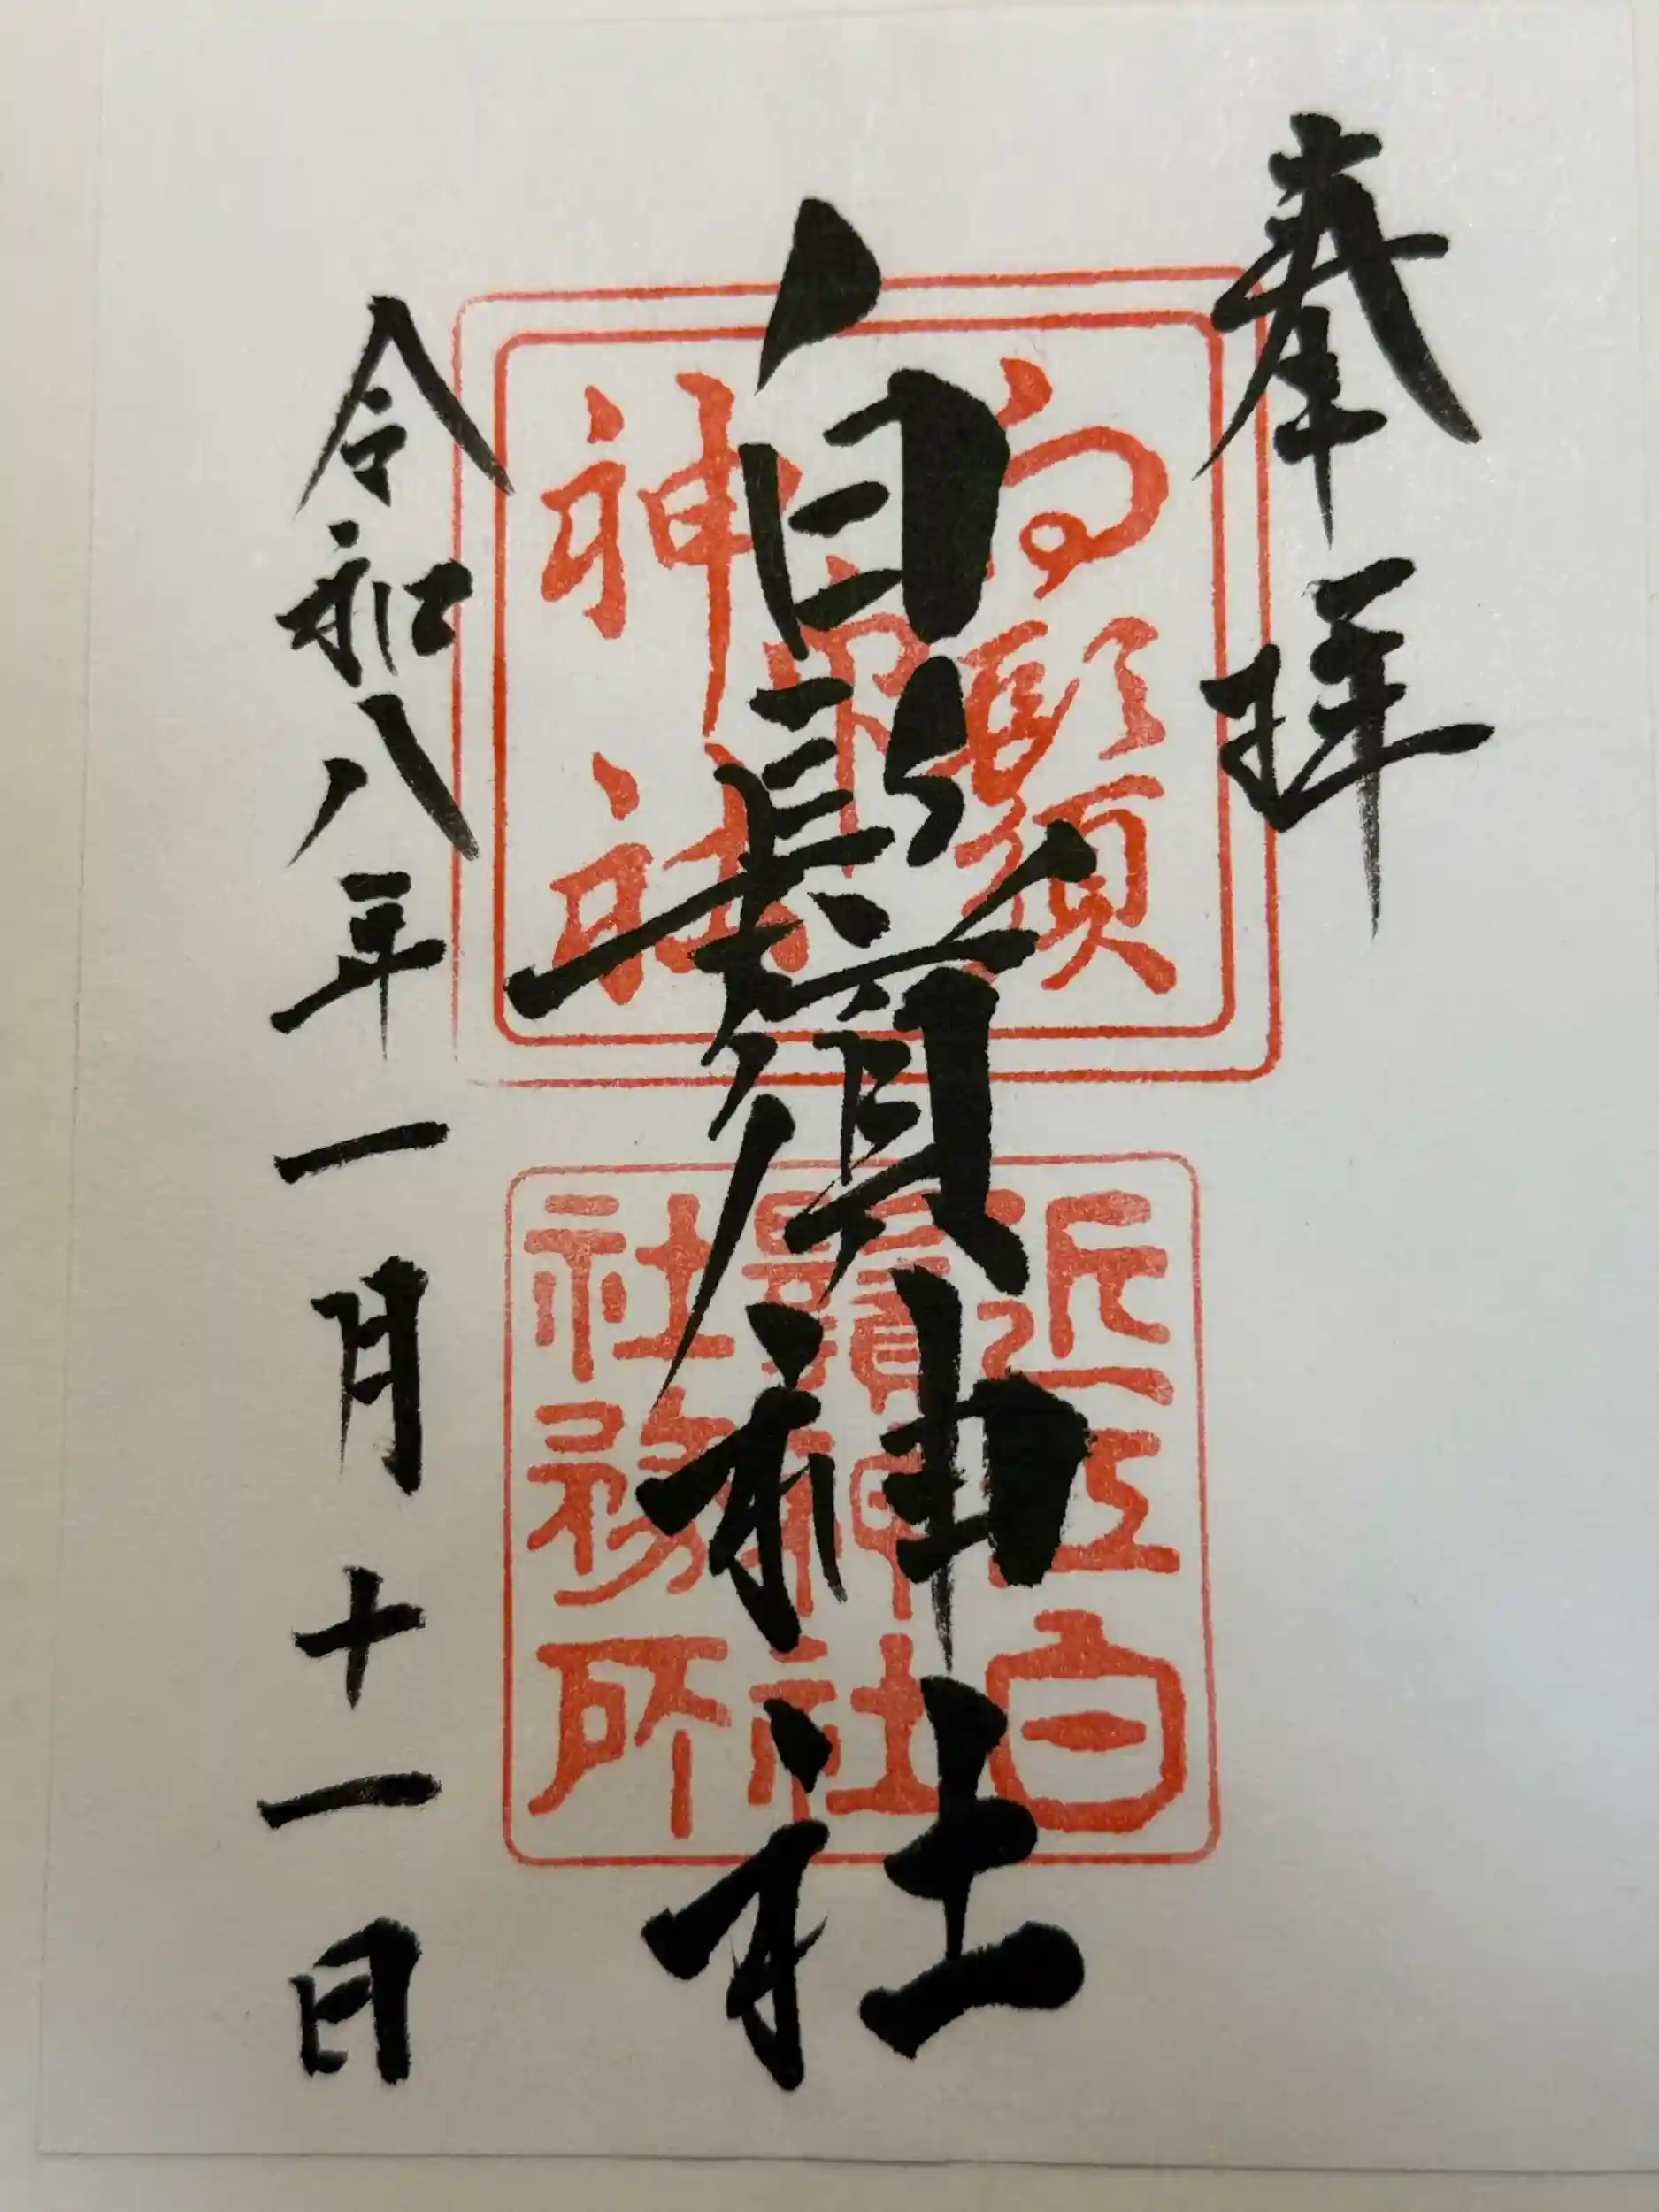 奉拝
白鬚神社
令和八年一月十一日
神社
近江白
鬚神社
社務所